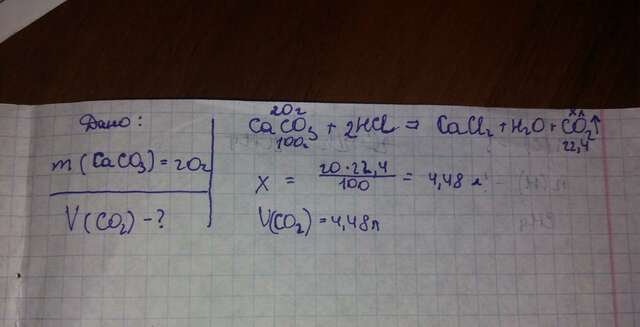 Дано:
m(CaCO₃) = 20г
V(CO₂) - ?
20г xл
CaCO₃ + 2HCl = CaCl₂ + H₂O + CO₂↑
100г 22,4
x = 20·22,4/100 = 4,48 л
V(CO₂) = 4,48л